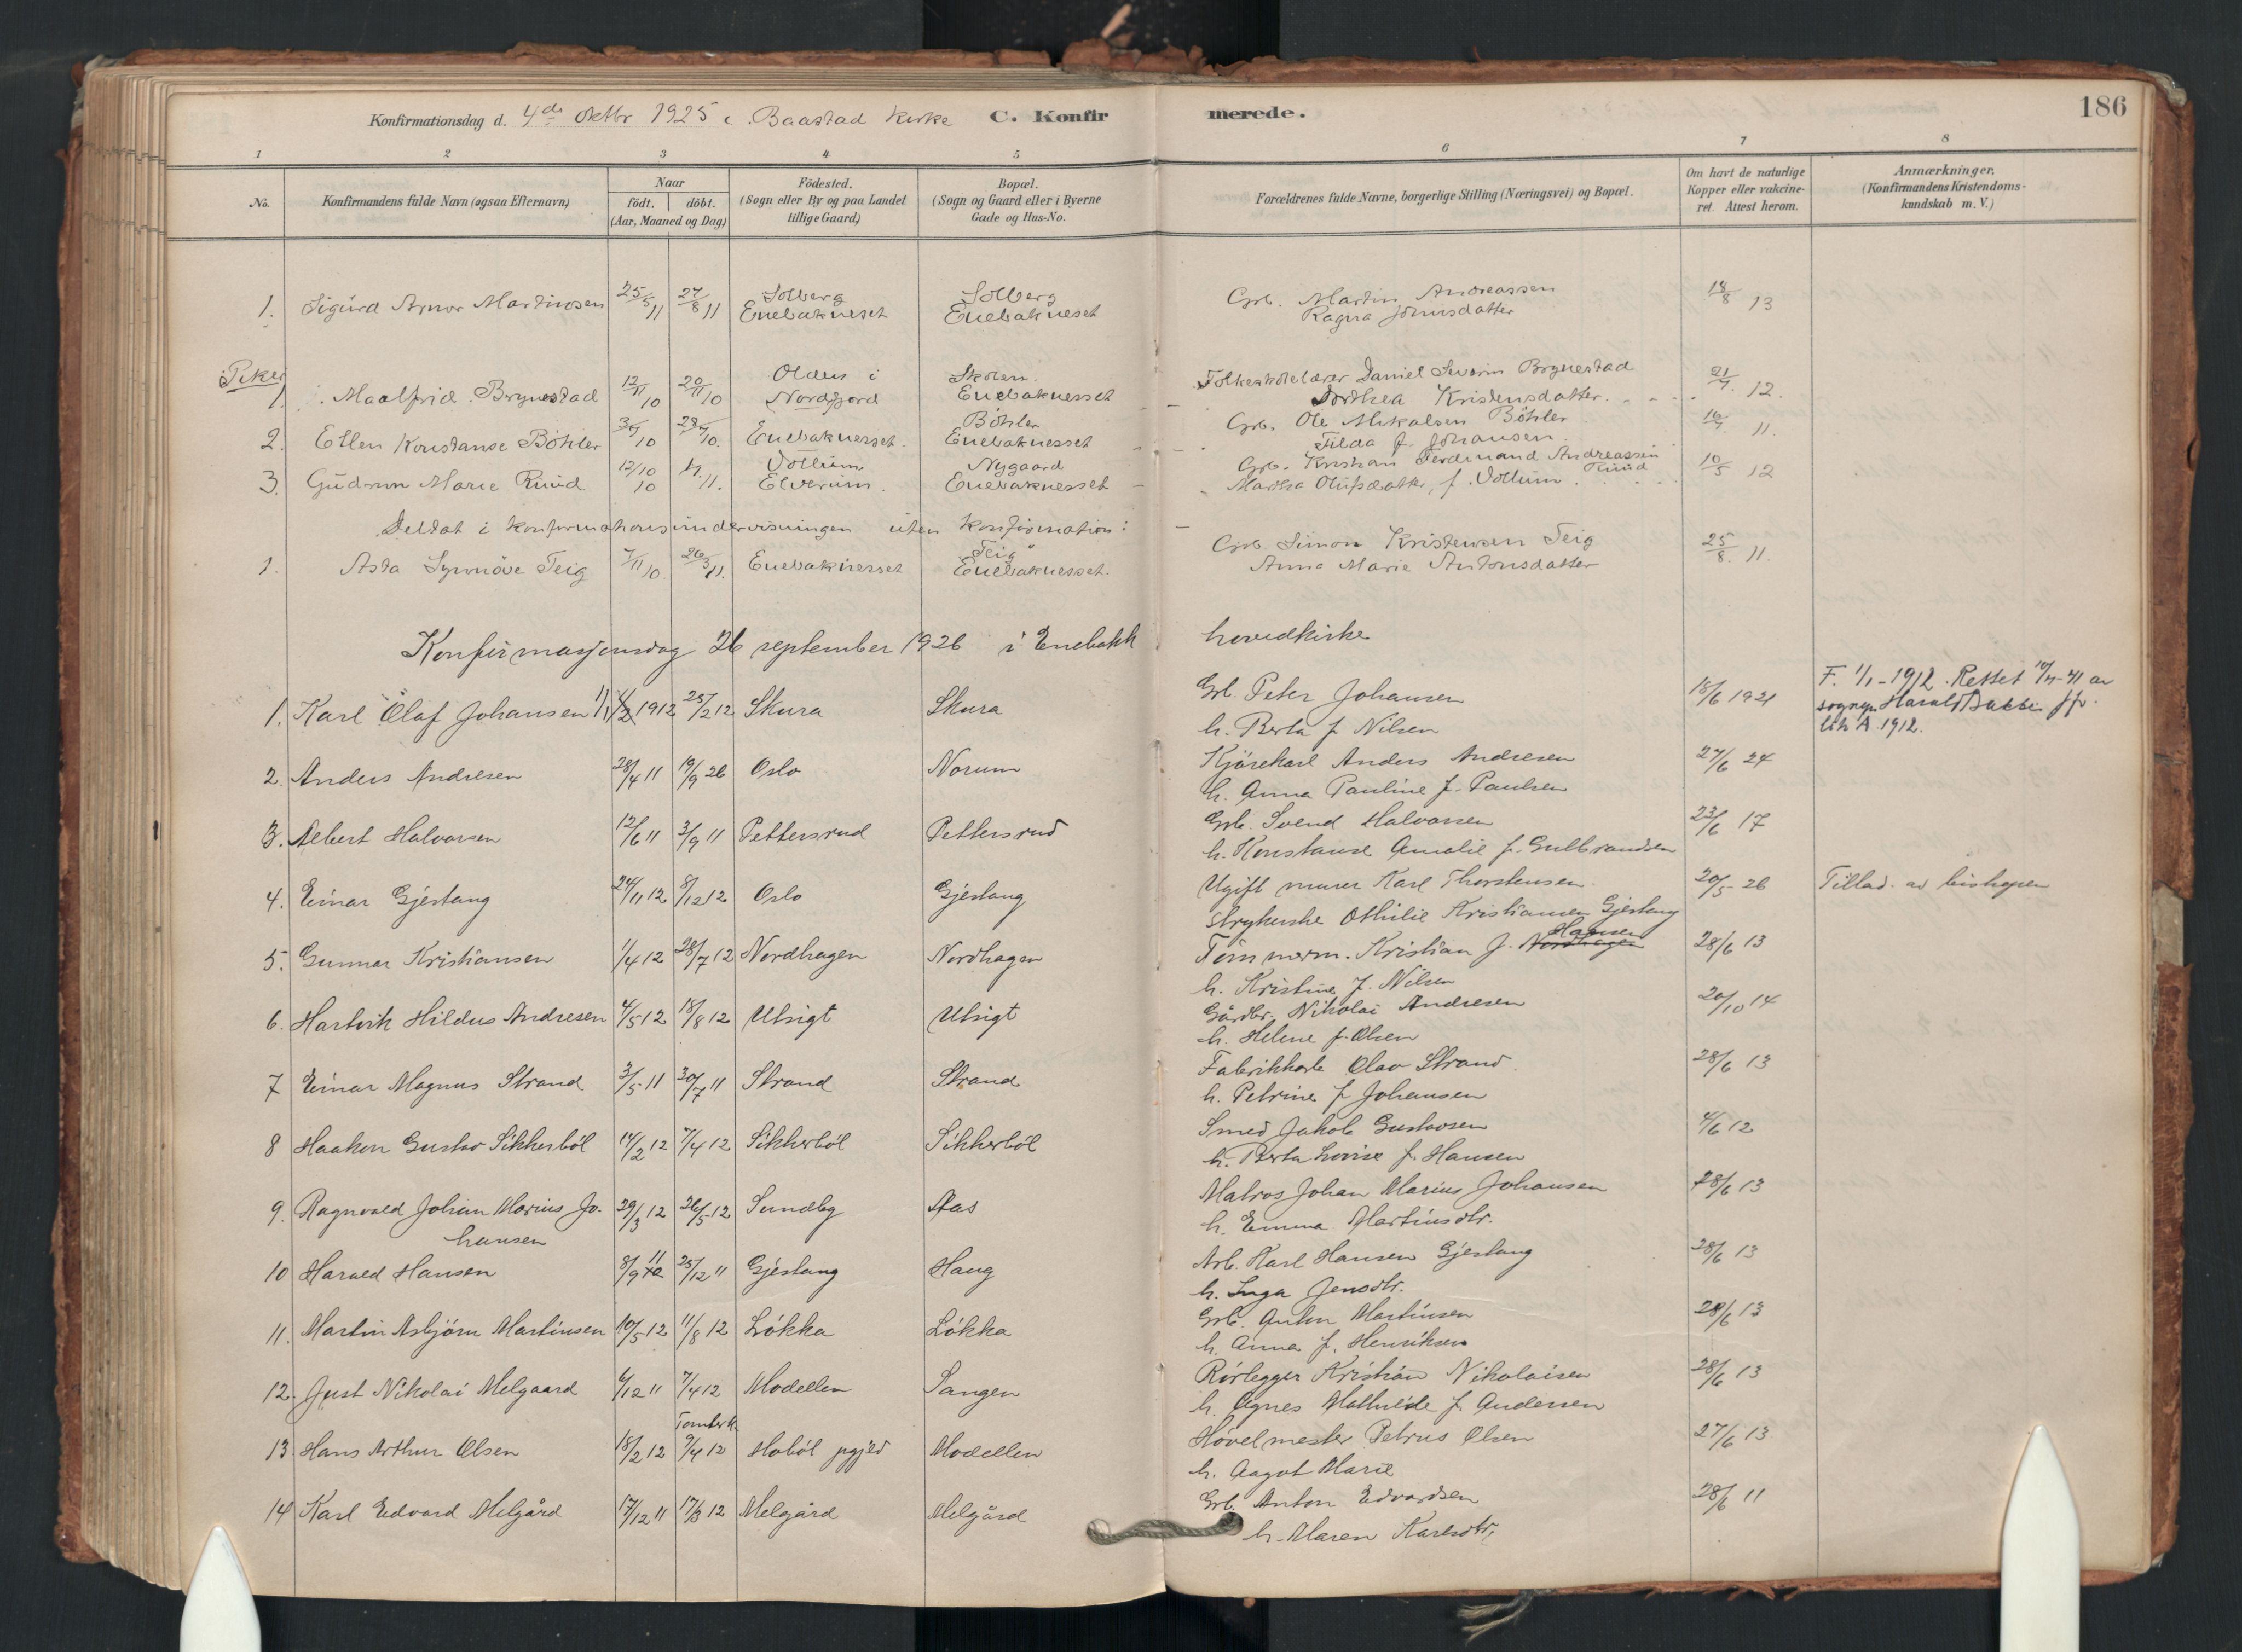 Konfirmationsdag d. 4de oktbr 1925 i Baastad kirke C. Konfirmerede. 186
1 2 3 4 5 6 7 8
No.
Konfirmandens fulde Navn (ogsaa Efternavn)
Naar
födt. döbt.
(Aar, Maaned og Dag)
Födested.
(Sogn eller By og paa Landet
tillige Gaard)
Bopæl.
(Sogn og Gaard eller i Byerne
Gade og Hus-No.
Forældrenes fulde Navne, borgerlige Stilling (Næringsvei) og Bopæl.
Om havt de naturlige
Kopper eller vakcine-
ret. Attest herom.
Anmærkninger.
(Konfirmandens Kristendoms-
kundskab m. V.)
1. Sigurd Arnor Martinsen 25/5 11 27/8 11 Solberg Enebakneset Solberg Enebakneset Grb. Martin Andreassen 18/8 13
Ragna Johnisdatter
Piker
1. Maalfrid Brynestad 12/11 10 20/11 10 Olden i Nordfjord Skolen Enebaknesset Folkeskolelærer Daniel Severin Brynestad 21/7. 12.
Dorthea Kristensdatter.
2. Ellen Konstanse Böhler 10 28/7 10. Enebaknesset. Böhler Enebaknesset Grb. Ole Mikalsen Böhler 11.
Tilda f. Johansen.
3. Gudrun Marie Ruud 12/10 10 11. Vollum Elverum. Nygaard Enebaknesset Grb. Kristian Ferdinand Andreassen Ruud 10/5 12
Martha Olufsdatter, f. Vollum.
Deltat i konfirmationsundervisningen uten konfirmation:
1. Asta Synnöve Teig 7/11 10. 26/3 11. Enebaknesset Teig Enebaknesset. Grb. Simon Kristensen Teig 25/8. 11.
Anna Marie Antonsdatter
Konfirmasjonsdag 26 september 1926 i Enebakk hovedkirke
1. Karl Olaf Johansen 1/1 1912 25/2 12 Skura Skura Grb. Peter Johansen 18/6 1921 F. 1/1-1912. Rettet 41 av
h. Berta f Nilsen sognepr. Harald Bakke jfr.
lib A. 1912.
2. Anders Andresen 28/4 11 19/9 26 Oslo Norum Kjörekarl Anders Andresen 27/6 24
h. Anna Pauline f. Paulsen
3. Albert Halvorsen 12/6 11 3/9 11 Pettersrud Pettersrud Grb. Svend Halvorsen 23/6 17
h. Konstanse Amalie f. Gulbrandsen
4. Einar Gjestang 24/11 12 8/12 12 Oslo Gjestang Ugift murer Karl Thorstensen 20/5-26 Tillad. av biskopen
strykerske Othilie Kristiansen Gjestang
5. Gunnar Kristiansen 1/4 12 28/7 12 Nordhagen Nordhagen Tömmerm. Kristian J. Nordhagen Hansen 28/6 13
h. Kristine f. Nilsen
6. Hartvik Hildus Andresen 4/5 12 18/8 12 Utsigt Utsigt Gårdbr. Nikolai Andresen 20/10 14
h. Helene f. Olsen
7 Einar Magnus Strand 3/5 11 30/7 11 Strand Strand Fabrikkarb Olav Strand 28/6 13
h. Petrine f Johansen
8 Haakon Gustav Sikkerböl 14/2 12 7/4 12 Sikkerböl Sikkerböl Smed Jakob Gustavsen 4/6 12
h. Berta Lovise f. Hansen
9. Ragnvald Johan Marius Jo- 29/3 12 26/5-12 Sundby Aas Matros Johan Marius Johansen 28/6 13
hansen h. Emma Martinsdtr.
10 Harald Hansen 8/9 11 25/12 11 Gjestang Haug Arb. Karl Hansen Gjestang 28/6 13
h. Inga Jensdtr.
11. Martin Asbjörn Martinsen 10/5 12 11/8 12 Lökka Lökka Grb. Anton Martinsen 28/6 13
h. Anna f. Henriksen
12. Just Nikolai Melgaard 6/12 11 7/4 12 Modellen Sangen Rörlegger Kristian Nikolaisen 28/6 13
h. Agnes Mathilde f. Andersen
13. Hans Arthur Olsen 18/2 12 Tomter k. 9/4 12 Hoböl pgjeld Modellen Hövelmester Petrus Olsen 27/6 13
h. Aagot Marie
14 Karl Edvard Melgård 17/12 11 17/3 12 Melgård Melgård Grb. Anton Edvardsen 28/6 11
h. Maren Karlsdtr,